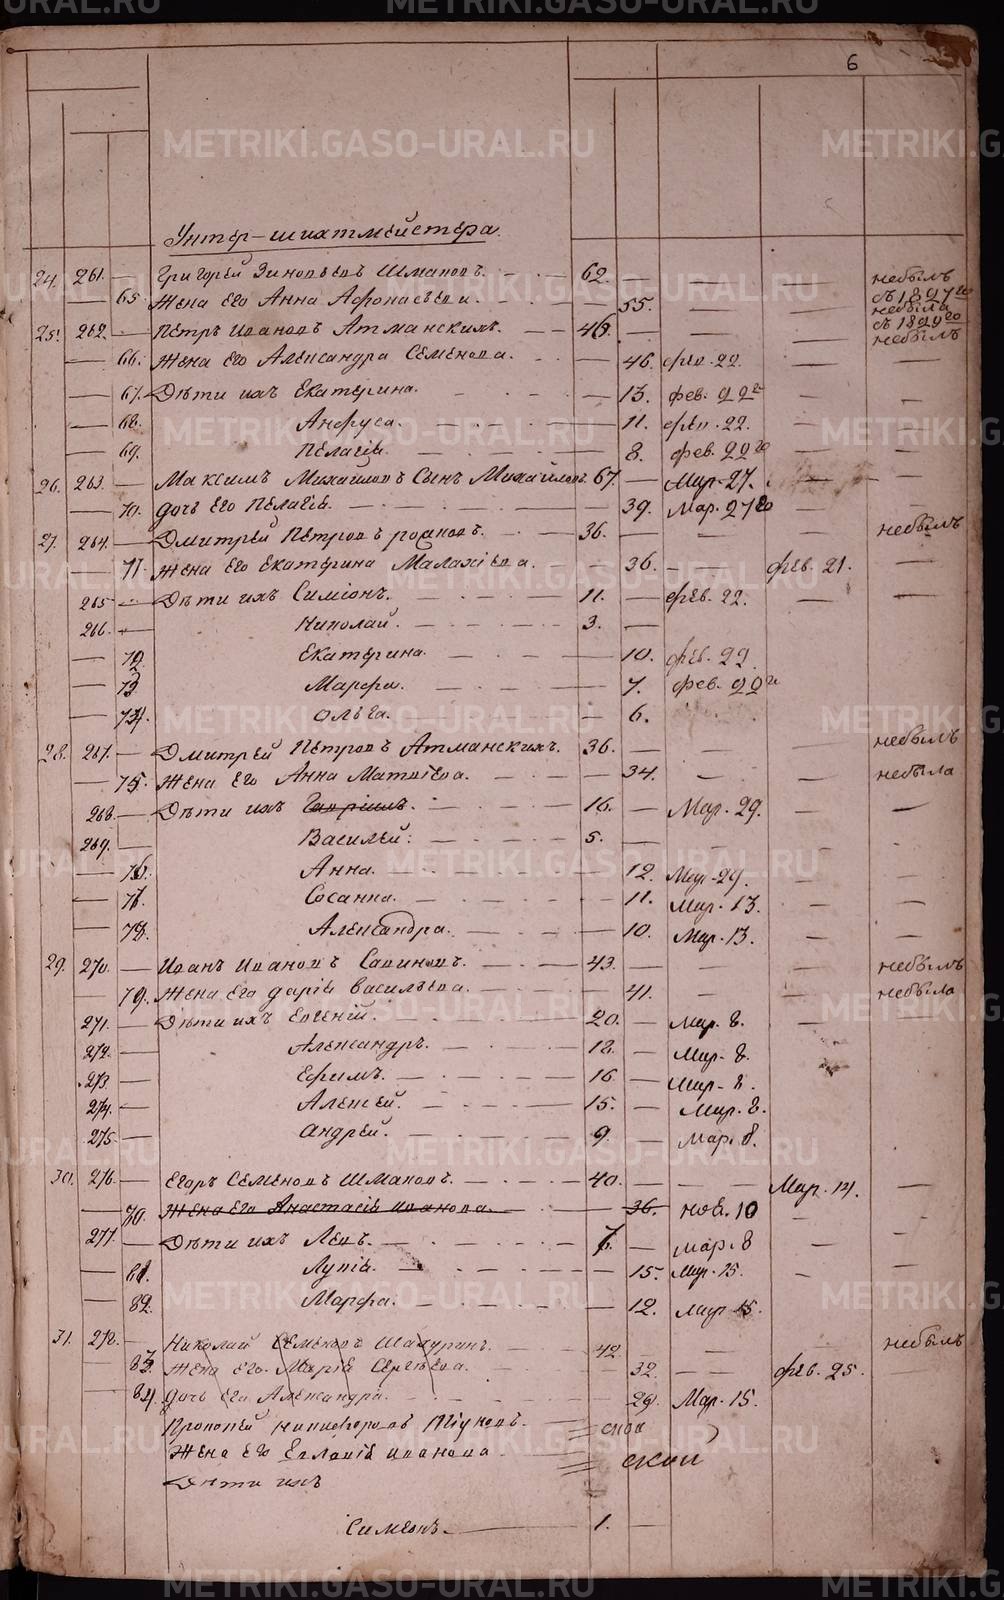 6
Унтер-шихтмейстера.
24. 261. — Григорей Зиновьевъ Шмановъ. 62. — — — небылъ съ 1827 го
— 65. Жена его Анна Афонасьева. — 55. — — небыла съ 1829 го
25. 262. — Петръ Ивановъ Атманскихъ. 46. — — — небылъ
— 66. Жена его Александра Семенова. — 46. фев. 22. — —
— 67. Дѣти ихъ Екатерина. — 13. фев. 22 — —
— 68. Анфуса. — 11. фев. 22. — —
— 69. Пелагія. — 8. фев. 22 — —
26. 263. — Максимъ Михайловъ Сынъ Михайловъ. 67. — Мар. 27. — —
— 70. дочь его Пелагія. — 39. Мар. 27 —
27. 264. — Дмитрей Петровъ 36. — — — небылъ
— 71. Жена его Екатерина Малахіева. — 36. — фев. 21. —
265. — Дѣти ихъ Симіонъ. 11. — фев. 22. — —
266. — Николай. 3. —
— 72. Екатерина. — 10. фев. 22.
— 73. Марфа. — 7. фев. 22
— 74. Ольга. — 6.
28. 267. — Дмитрей Петровъ Атманскихъ. 36. — — — небылъ
— 75. Жена его Анна Матвіева. — 34. — — небыла
268. — Дѣти ихъ Гавріилъ. 16. — Мар. 29. — —
269. — Василей. 5. —
— 76. Анна. — 12. Мар. 29. — —
— 77. Сосанна. — 11. Мар. 13. — —
— 78. Александра. — 10. Мар. 13. — —
29. 270. — Иванъ Ивановъ Савиновъ. 43. — — — небылъ
— 79. Жена его дарія Васильева. — 41. — — небыла
271. — Дѣти ихъ Евгеній. 20. — Мар. 8. —
272. — Александръ. 18. — Мар. 8.
273. — Ефимъ. 16 — Мар. 8.
274. — Алексей. 15. — Мар. 8.
275. — Андрей. 9. — Мар. 8.
30. 276. — Егоръ Семеновъ Шмановъ. 40. — — Мар. 14. —
— 80. Жена его Анастасія Иванова. — 36. ноя. 10 —
277. — Дѣти ихъ Левъ. 7. — Мар. 8 — —
— 81. Лупія. — 15. Мар. 15. — —
— 82. Марфа. — 12. Мар. 15.
31. 278. — Николай Семеновъ Шадуринъ. 42. — — — небылъ
— 83. Жена его Марія Сергѣева. — 32. — фев. 25. —
— 84. дочь его Александра. — 29. Мар. 15.
Прокопей Никифоровъ
Жена его Евлавія Иванова
Дѣти ихъ
Симеонъ — 1. —
METRIKI.GASO-URAL.RU